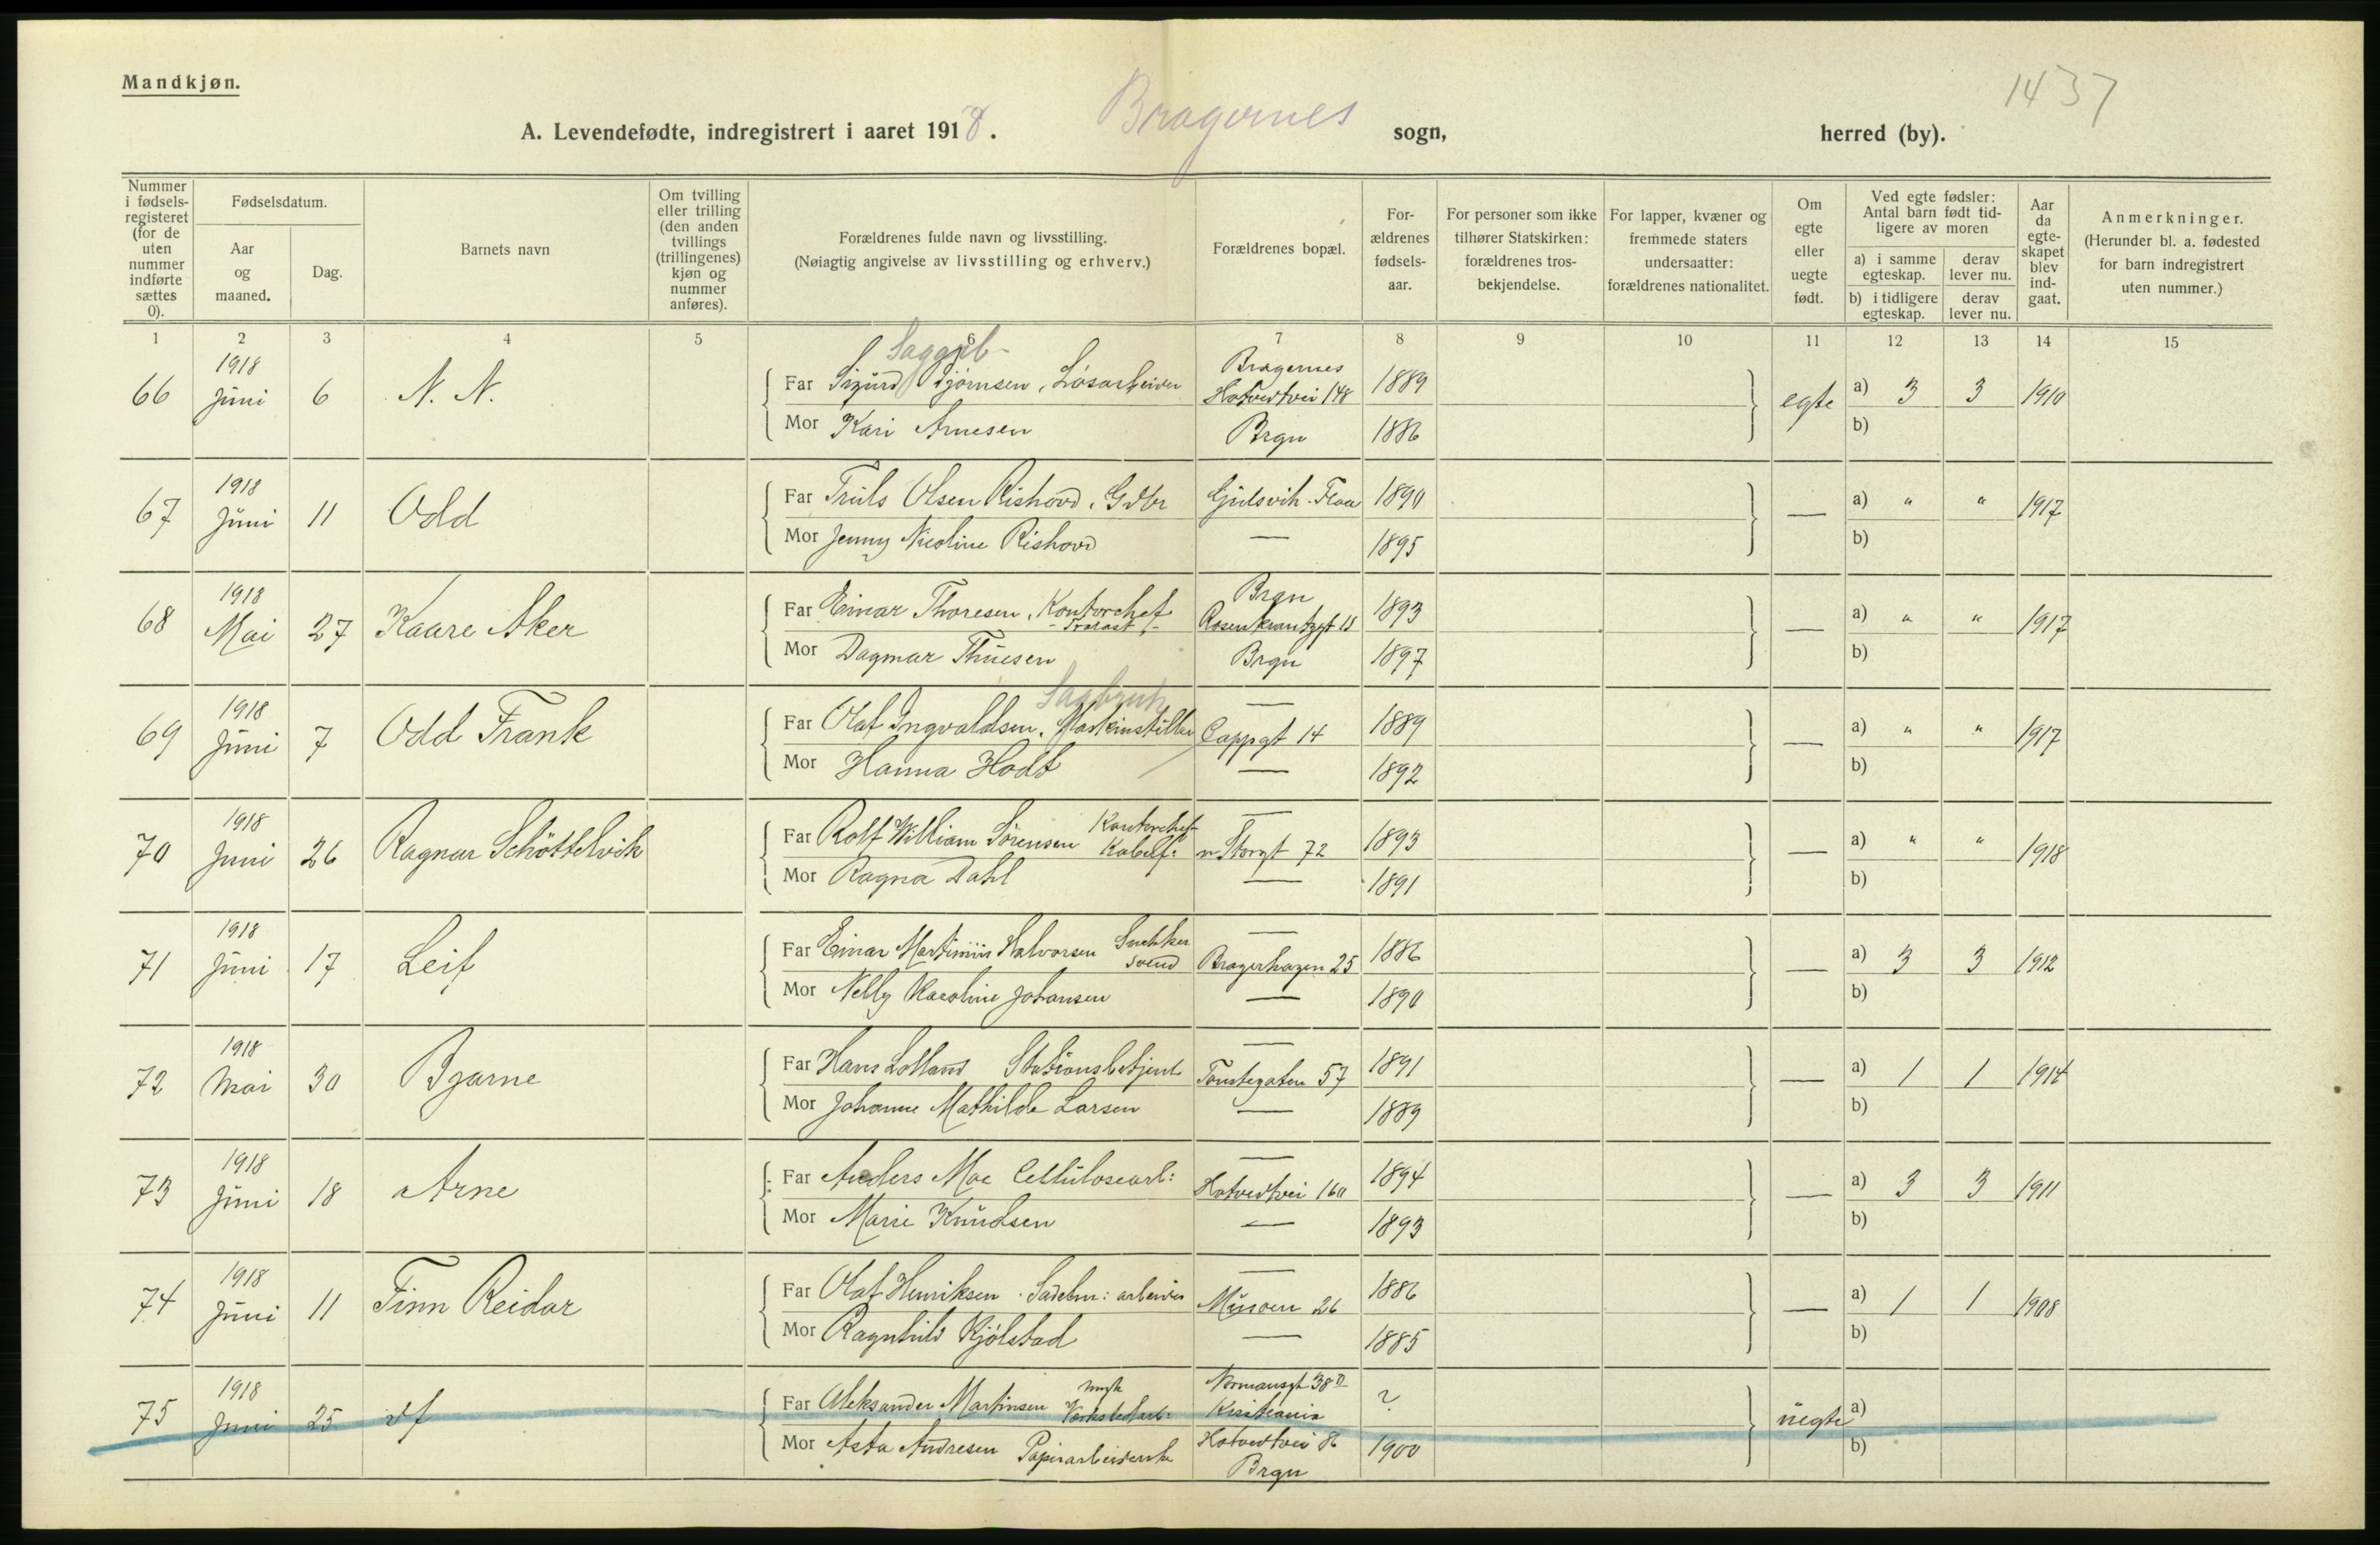 Mandkjøn.
1437
A. Levendefødte, indregistrert i aaret 1918. Bragernes sogn, herred (by).
Nummer i fødsels-registeret (for de uten nummer indførte sættes 0).
Fødselsdatum.
Aar og maaned.
Dag.
Barnets navn
Om tvilling eller trilling (den anden tvillings (trillingenes) kjøn og nummer anføres).
Forældrenes fulde navn og livsstilling.
(Nøiagtig angivelse av livsstilling og erhverv.)
Forældrenes bopæl.
For-ældrenes fødsels-aar.
For personer som ikke tilhører Statskirken: forældrenes tros-bekjendelse.
For lapper, kvæner og fremmede staters undersaatter: forældrenes nationalitet.
Om egte eller uegte født.
Ved egte fødsler: Antal barn født tid-ligere av moren
a) i samme egteskap.
derav lever nu.
b) i tidligere egteskap.
derav lever nu.
Aar da egte-skapet blev ind-gaat.
Anmerkninger.
(Herunder bl. a. fødested for barn indregistrert uten nummer.)
1 2 3 4 5 6 7 8 9 10 11 12 13 14 15
66 1918 Juni 6 N. N.
Far Sigurd Bjørnsen, Løsarbeider Bragernes Hotvedtvei 148 1889 egte a) 3 3 1910
Mor Kari Arnesen Brgn 1886 b)
67 1918 Juni 11 Odd
Far Truls Olsen Rishovd, Gdbr Gjulsvik Flaa 1890 — a) " " 1917
Mor Jenny Nicoline Rishovd — 1895 b)
68 1918 Mai 27 Kaare Aker
Far Einar Thoresen, Kontorchef - Trælast - Brgn Rosenkrantzgt 18 1893 — a) " " 1917
Mor Dagmar Thuesen Brgn 1897 b)
69 1918 Juni 7 Odd Frank
Sagbruk
Far Olaf Ingvaldsen, Maskinstiller — Cappgt 14 1889 — a) " " 1917
Mor Hanna Hodt — 1892 b)
70 1918 Juni 26 Ragnar Schøttelvik
Far Rolf William Sørensen Kontorchef Kabelf: — n. Storgt 72 1893 — a) " " 1918
Mor Ragna Dahl — 1891 b)
71 1918 Juni 17 Leif
Far Einar Martinius Halvorsen Snekker svend — Bragerhagen 25 1886 — a) 3 3 1912
Mor Nelly Karoline Johansen — 1890 b)
72 1918 Mai 30 Bjarne
Far Hans Lolland Stationsbetjent — Tomtegaten 57 1891 — a) 1 1 1914
Mor Johanne Mathilde Larsen — 1889 b)
73 1918 Juni 18 Arne
Far Anders Moe Cellulosearb: — Hotvedtvei 160 1894 — a) 3 3 1911
Mor Marie Knudsen — 1893 b)
74 1918 Juni 11 Finn Reidar
Far Olaf Henriksen arbeider — 26 1886 — a) 1 1 1908
Mor Ragnhild Kjølstad — 1885 b)
75 1918 Juni 25 df
Far Aleksander Martinsen Verkstedarb: Normansgt 38 II Kristiania ? uegte a)
Mor Asta Andresen Papirarbeiderske Hotvedtvei 86 Brgn 1900 b)